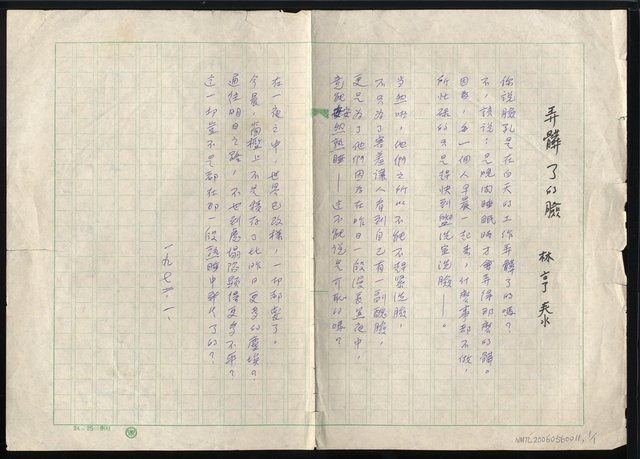 弄髒了的臉
林亨泰
你說臉孔是在白天的工作弄髒了的嗎？
不，該說：是晚間睡眠時才會弄得那麼的髒。
因為，每一個人早晨一起來，什麼事都不做，
所忙碌的只是趕快到盥洗室洗臉——。
當然啦，他們之所以不能不趕緊洗臉，
不只為了害羞讓人看到自己有一副醜臉，
更是為了他們因為在昨日一段漫長黑夜中，
竟能安然熟睡——這不能說是可恥的嗎？
在一夜之中，世界已改樣，一切都變了。
今晨，窗檻上不是積存了比昨日更多的塵埃？
通往明日之路，不也到處塌陷顯得更多不平？
這一切豈不是都在那一段熟睡中發生了的？
一九七二．一．
24×25=600
NMTL20060560011, 1/1